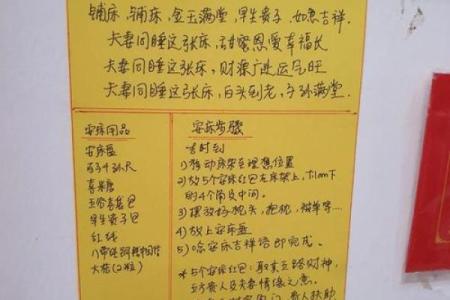 铺床,铺床,金玉满堂,早生贵子,如意吉祥.
夫妻同睡这张床,甜蜜恩爱幸福长
夫妻同睡这张床,财源广进运气旺
夫妻同睡这张床,白头到老,子孙满堂.
安床用品
安床盘
百子千孙尺
喜米糖
五谷喜袋包
早生贵子包
红线
大桔(2粒)
安床步骤
吉时到
1)移动床架至理想位置
2)放5个安床红包在床架上,
4个角及中间.
3)摆放好枕头,抱枕,被单等…
4)放上安床盘
5)念安床吉祥语即完成.
*5个安床红包:取其五路财神,
五方贵人及夫妻情缘之意.
贵人扶助